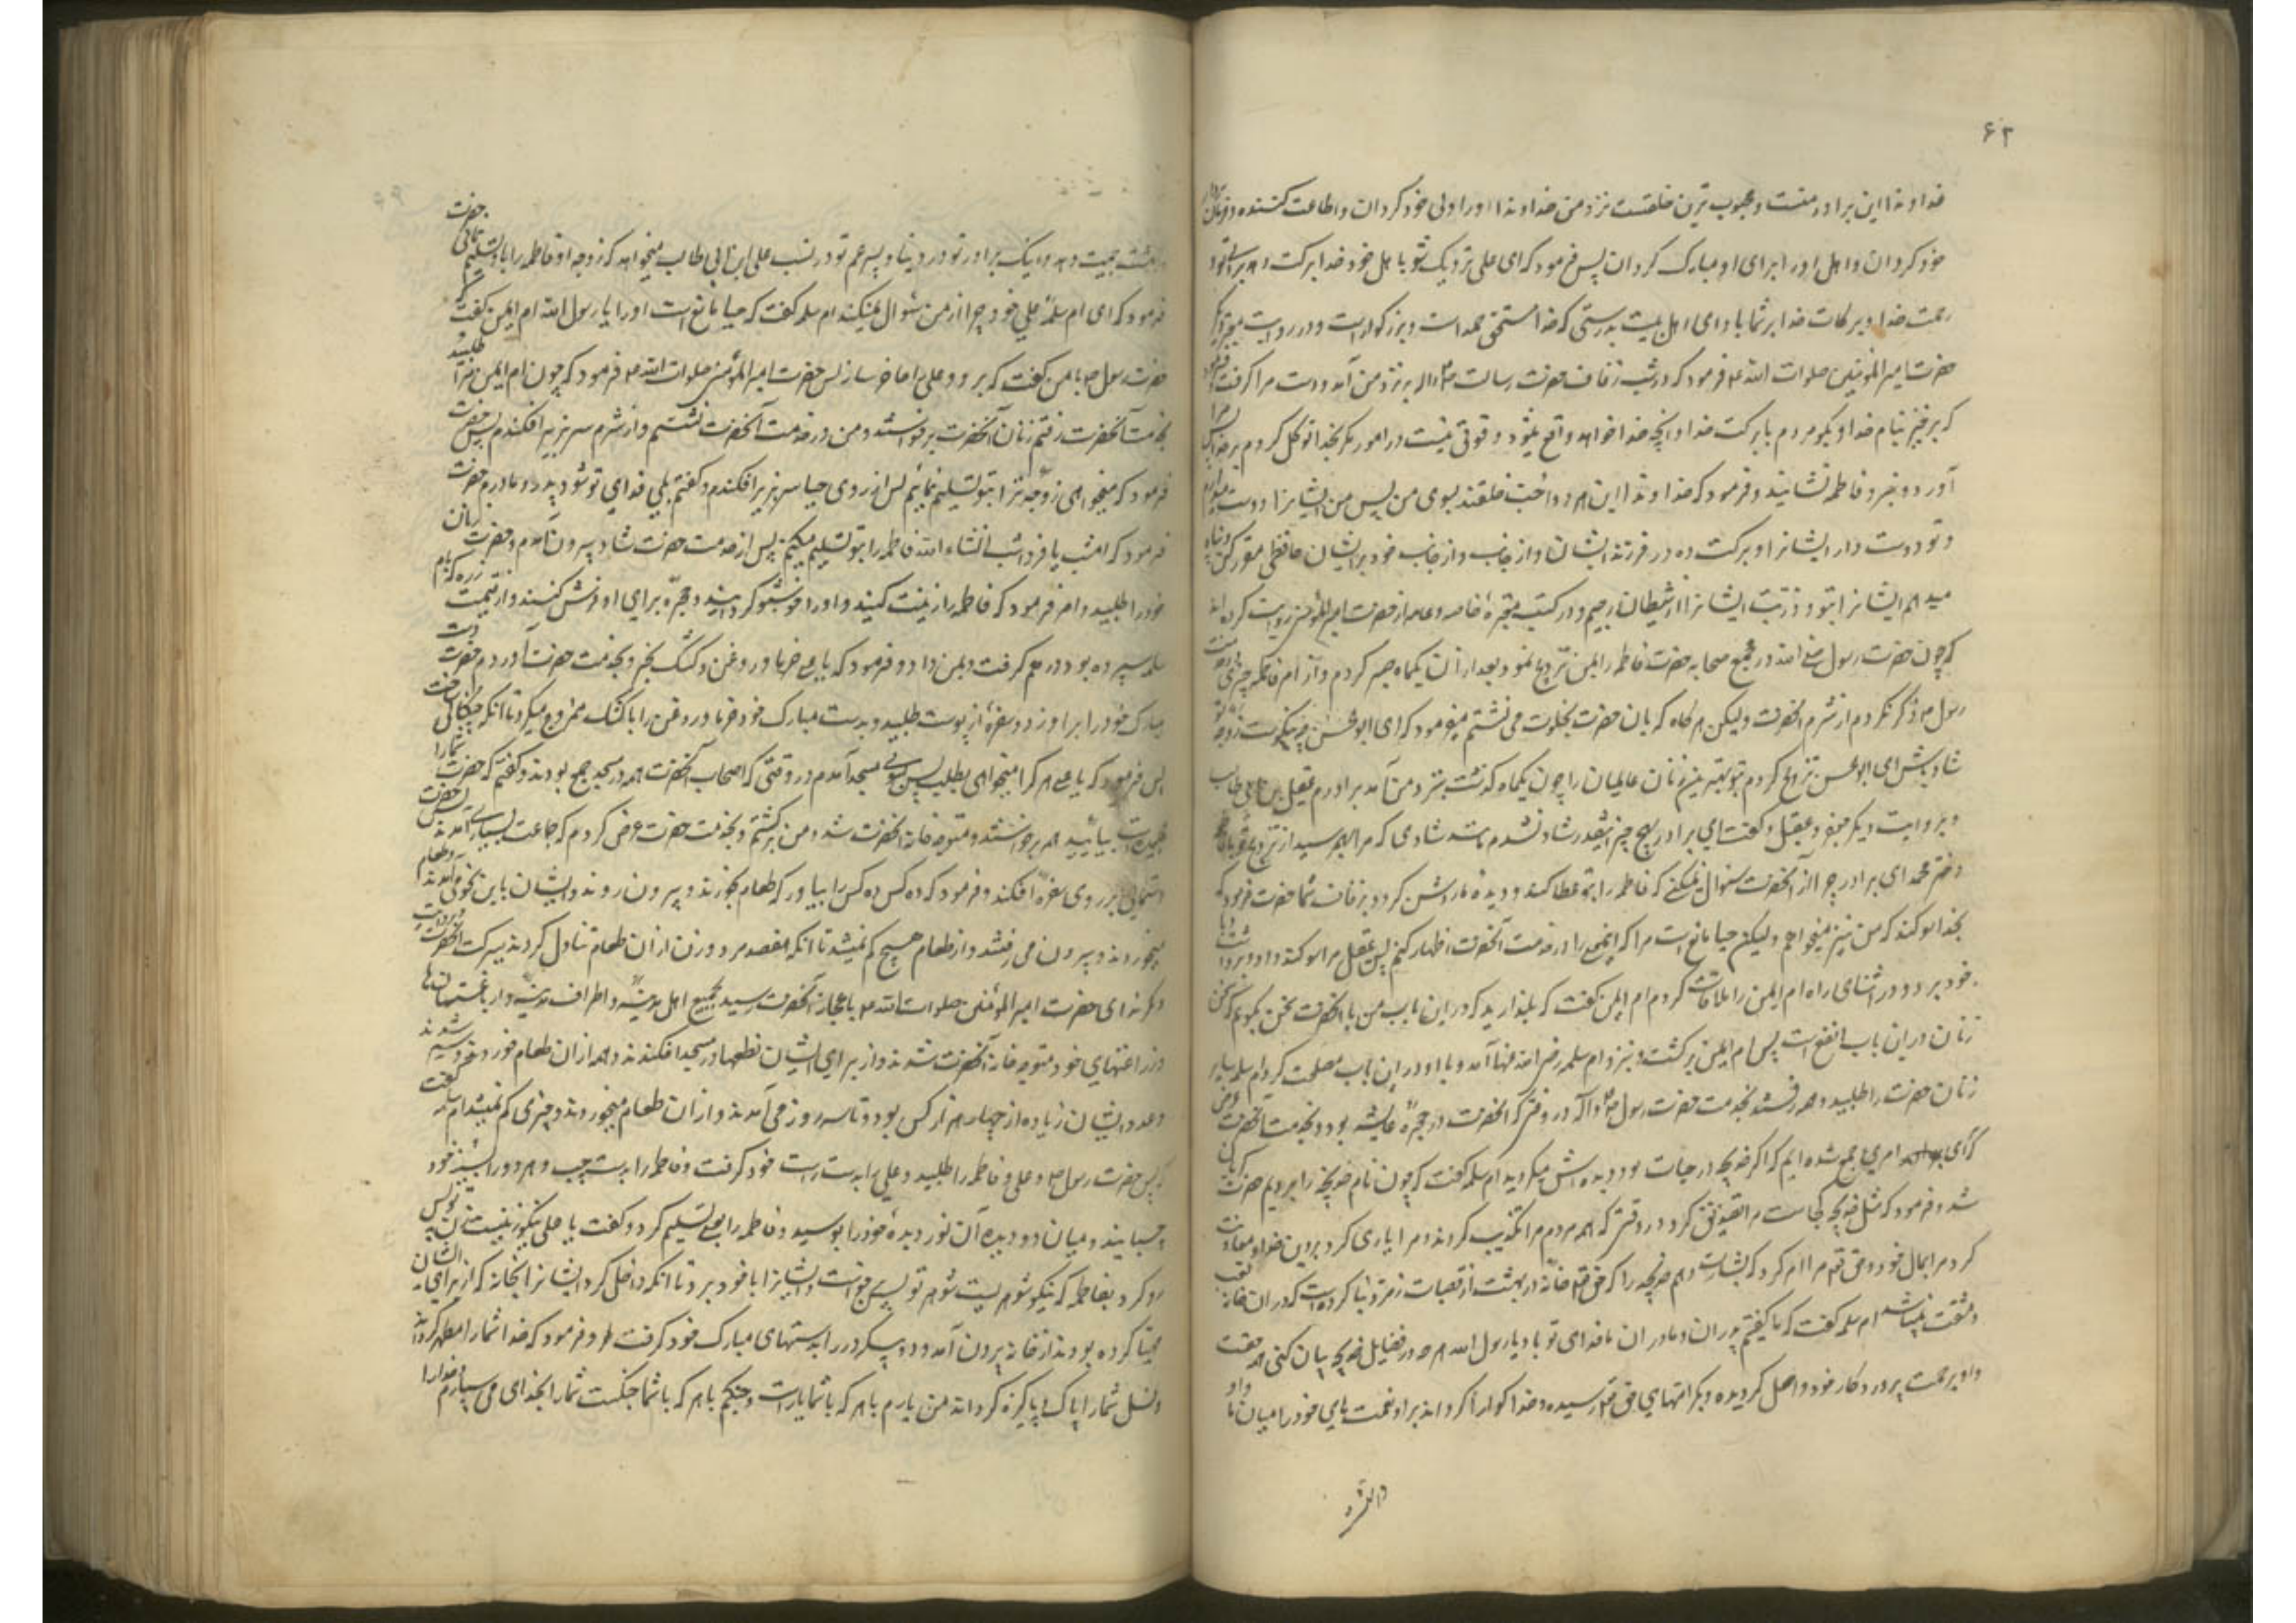 ۶۲
خداوندا این برادر منست و محبوب ترین خلقست نزد من خداوندا او را ولی خود کردان و اطاعت کننده و فرمان بردار
خود کردان و اهل او را برای او مبارک کردان پس فرمود که ای علی نزدیک شو با اهل خود خدا برکت دهد برای تو و
رحمت خدا و برکات خدا بر شما باد ای اهل بیت بدرستی که خدا مستحق حمد است و بزرکوار است و در روایت معتبر دیکر
حضرت امیر المؤمنین صلوات الله علیه فرمود که در شب زفاف حضرت رسالت نزد من آمد و دست مرا کرفت و فرمود
که برخیز بنام خدا و بکو مردم با برکت خدا و آنچه خدا خواهد واقع میشود و قوتی نیست در امور مکر بخدا توکل کردم بر خدا پس مرا
آورد و نزد فاطمه نشانید و فرمود که خداوندا این هر دو احب خلقند بسوی من پس من ایشانرا دوست میدارم
و تو دوست دار ایشانرا و برکت ده در فرزند ایشان و از جانب خود بر ایشان حافظی مقرر کن و پناه
میدهم ایشانرا بتو و ذریت ایشانرا از شیطان رجیم و در کتب معتبره خاصه و عامه از حضرت امیر المؤمنین روایت کرده اند
که چون حضرت رسول در مجمع صحابه حضرت فاطمه را بمن تزویج نمود بعد از آن یکماه صبر کردم و از امر فاطمه چیزی بحضرت
رسول ذکر نکردم از شرم آنحضرت ولیکن هرکاه که بآن حضرت بخلوت می نشستم میفرمود که ای ابو الحسن چه نیکوست زوجه تو
شاد باش ای ابو الحسن تزویج کردم بتو بهترین زنان عالمیان را چون یکماه کذشت نزد من آمد برادرم عقیل بن ابی طالب
و بروایت دیکر جعفر و عقیل و کفت ای برادر بهیچ چیز اینقدر شاد نشدم مانند شادی که مرا بهم رسید از تزویج تو با فاطمه
دختر محمد ای برادر چرا از آنحضرت سؤال نمیکنی که فاطمه را بتو عطا کند و دیده ما روشن کردد بزفاف شما حضرت فرمود که
بخدا سوکند که من نیز میخواهم ولیکن حیا مانع است مرا که اینمعنی را در خدمت آنحضرت اظهار کنم پس عقیل مرا سوکند داد و برداشت با
خود برد و در اثنای راه ام ایمن را ملاقات کردم ام ایمن کفت که بکذارید که در این باب من با آنحضرت سخن بکویم که سخن
زنان در این باب انفع است پس ام ایمن برکشت و نزد ام سلمه رضی الله عنها آمد و با او در این باب مصلحت کرد ام سلمه سایر
زنان حضرت را طلبید و همه رفتند بخدمت حضرت رسول در وقتی که آنحضرت در حجره عایشه بود و بخدمت آنحضرت عرض
امری جمع شده ایم که اکر خدیجه در حیات بود دیده اش میکردید ام سلمه کفت که چون نام خدیجه را بردیم حضرت کریان
شد و فرمود که مثل خدیجه کجاست مرا تصدیق کرد در وقتی که همه مردم مرا تکذیب کردند و مرا یاری کرد بر دین خدا و معاونت
کرد مرا بمال خود و حق تعالی مرا امر کرد که بشارت دهم خدیجه را که حق تعالی خانه در بهشت از قصبات زمرد بنا کرده است که در آن خانه تعب
و مشقت نمیباشد ام سلمه کفت که ما کفتیم پدران و مادران ما فدای تو باد یا رسول الله هرچه در فضایل خدیجه بیان کنی همه حقست
و او برحمت پروردکار خود واصل کردیده و بکرامتهای حق تعالی رسیده و خدا کوارا کرداند بر او نعمت های خود را و میان ما و او
جمعیت دهد و اینک برادر تو در دنیا و پسر عم تو در نسب علی ابن ابی طالب میخواهد که زوجه او فاطمه را باو تسلیم نمائی حضرت
فرمود که ای ام سلمه علی خود چرا از من سؤال نمیکند ام سلمه کفت که حیا مانع است او را یا رسول الله ام ایمن کفت که
حضرت رسول بامن کفت که برو و علی را حاضر ساز پس حضرت امیر المؤمنین صلوات الله علیه فرمود که چون ام ایمن مرا طلبید
بخدمت آنحضرت رفتم زنان آنحضرت برخواستند و من در خدمت آنحضرت نشستم و از شرم سر بزیر افکندم پس حضرت
فرمود که میخواهی زوجه ترا بتو تسلیم نمائیم پس از روی حیا سر بزیر افکندم و کفتم بلی فدای تو شود پدر و مادرم حضرت
فرمود که امشب یا فردا شب انشاء الله فاطمه را بتو تسلیم میکنم پس از خدمت حضرت شاد بیرون آمدم و حضرت زنان
خود را طلبید و امر فرمود که فاطمه را زینت کنید و او را خوشبو کردانید و حجره برای او فرش کنند و از قیمت زره که بام
سلمه سپرده بود درهم کرفت و بمن داد و فرمود که یا علی خرما و روغن و کشک بخر و بخدمت حضرت آوردم حضرت دست
مبارک خود را برآورد و سفره از پوست طلبید و بدست مبارک خود خرما و روغن را با کشک ممزوج میکرد تا آنکه چنکالی ساخت
پس فرمود که یا علی هر کرا میخواهی بطلب پس بسوی مسجد آمدم در وقتی که اصحاب آنحضرت همه در مسجد جمع بودند و کفتم که حضرت شما را
طلبیده است بیائید همه برخواستند و متوجه خانه آنحضرت شدند و من برکشتم و بخدمت حضرت عرض کردم که جماعت بسیاری آمدند پس حضرت
دستمالی بر روی سفره افکند و فرمود که ده کس ده کس را بیاور که طعام بخورند و بیرون روند و ایشان باین نحو می آمدند و طعام
میخوردند و بیرون می رفتند و از طعام هیچ کم نمیشد تا آنکه هفتصد مرد و زن از آن طعام تناول کردند ببرکت آنحضرت و بروایت
دیکر ندای حضرت امیر المؤمنین صلوات الله علیه باعجاز آنحضرت رسید بجمیع اهل مدینه و اطراف مدینه و از باغستانها
و زراعتهای خود متوجه خانه آنحضرت شدند و از برای ایشان نطعها در مسجد افکندند و همه از آن طعام خوردند و سیر شدند
و عدد ایشان زیاده از چهار هزار کس بود و تا سه روز می آمدند و از آن طعام میخوردند و چیزی کم نمیشد ام سلمه کفت
که پس حضرت رسول علی و فاطمه را طلبید و علی را بدست راست خود کرفت و فاطمه را بدست چپ و هر دو را بسینه خود
چسبانید و میان دو دیده آن نور دیده خود را بوسید و فاطمه را بعلی تسلیم کرد و کفت یا علی نیکو زنیست زن تو پس
رو کرد بفاطمه که نیکو شوهریست شوهر تو پس برخواست و ایشانرا با خود برد تا آنکه داخل کرد ایشانرا بخانه که از برای ایشان
مهیا کرده بودند از خانه بیرون آمد و دو پسکر در را بدستهای مبارک خود کرفت و فرمود که خدا شما را مطهر کرداند
و نسل شما را پاک و پاکیزه کرداند من یارم با هر که با شما یار است و جنکم با هر که با شما جنکست شما را بخدای می سپارم و خدا را